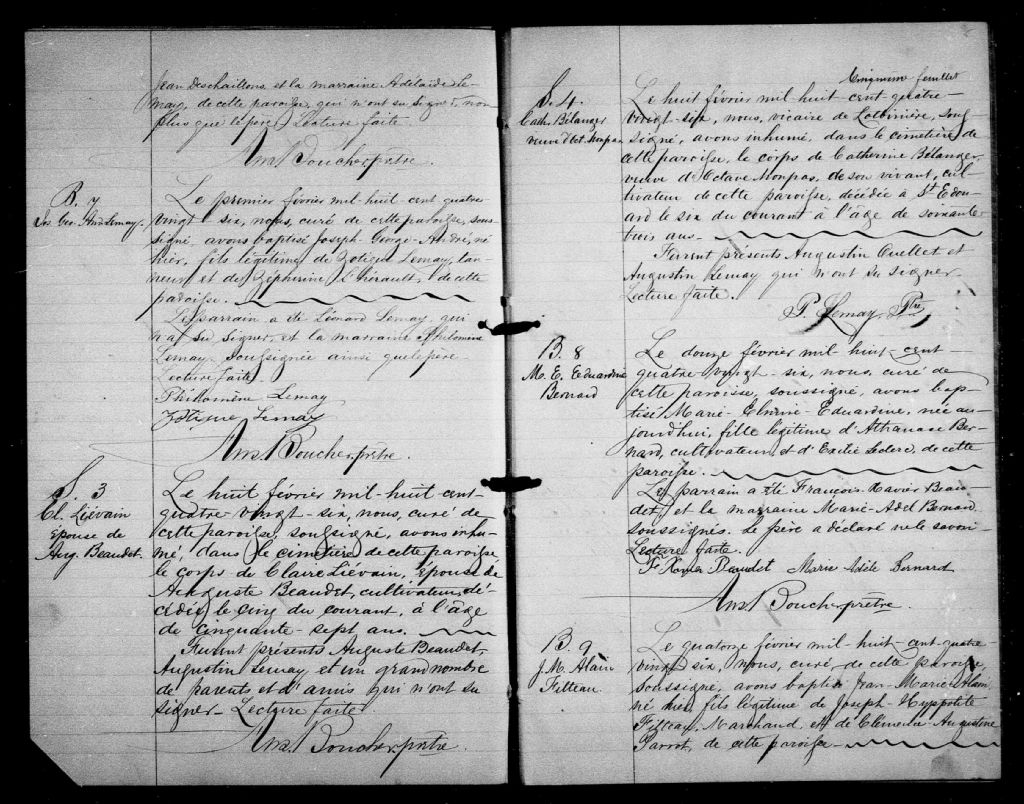 Jean Deschaillons et la marraine Adélaïde Le-
may, de cette paroisse, qui n'ont su signer, non
plus que le père. Lecture faite.
Ams. Boucher, ptre.
B. 7
Jos. Geo. And. Lemay.
Le premier février mil-huit-cent quatre
vingt-six, nous, curé de cette paroisse, sous-
signé avons baptisé Joseph-George-André, né
hier, fils légitime de Zotique Lemay, tan-
neur et de Zéphirine L'hérault, de cette
paroisse.
Le parrain a été Léonard Lemay, qui
n'a su signer, et la marraine Philomène
Lemay, soussignée ainsi que le père.
Lecture faite.
Philomène Lemay
Zotique Lemay
Ams. Boucher, ptre.
S. 3
Cl. Liévain
épouse de
Aug. Beaudet.
Le huit février mil-huit cent-
quatre vingt-six, nous, curé de
cette paroisse, soussigné, avons inhu-
mé, dans le cimetière de cette paroisse
le corps de Claire Liévain, épouse de
Auguste Beaudet, cultivateur, dé-
cédée le cinq du courant, à l'âge
de cinquante-sept ans.
Furent présents Auguste Beaudet,
Augustin Lemay et un grand nombre
de parents et d'amis qui n'ont su
signer. Lecture faite
Ams. Boucher, ptre.
Cinquième feuillet
S. 4.
Cath. Bélanger
veuve d'Oct. Monpas
Le huit février mil-huit cent-quatre-
vingt-six, nous, vicaire de Lotbinière, sous-
signé, avons inhumé, dans le cimetière de
cette paroisse, le corps de Catherine Bélanger
veuve d'Octave Monpas, de son vivant, cul-
tivateur de cette paroisse, décédée à St Edou-
ard le six du courant à l'âge de soixante-
trois ans.
Furent présents Augustin Ouellet et
Augustin Lemay qui n'ont su signer
Lecture faite.
P. Lemay, Ptre,
B. 8
M. E. Eduardine
Bernard
Le douze février mil huit-cent-
quatre vingt-six, nous, curé de
cette paroisse, soussigné, avons bap-
tisé Marie-Eduardine, née au-
jourd'hui, fille légitime d'Athanase Ber-
nard, cultivateur, et d'Exilie Leclerc, de cette
paroisse.
Le parrain a été François-Xavier Beau-
det, et la marraine Marie-Adèl Bernard
soussignés. Le père a déclaré ne le savoir.
Lecture faite.
F. Xavier Beaudet Marie Adèle Bernard
Ams. Boucher, ptre.
B. 9
J. M. Alain
Filteau.
Le quatorze février mil-huit-cent-quatre
vingt six, nous, curé de cette paroisse,
soussigné, avons baptisé Jean-Marie-Alain
né hier, fils légitime de Joseph-Hyppolite
Filteau, Marchand, et de Clémence-Augustine
Parrot, de cette paroisse